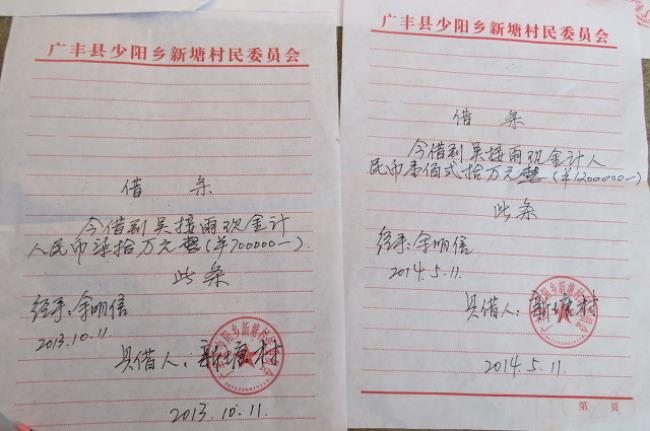 广丰县少阳乡新塘村民委员会
借条
今借到吴接雨现金计
人民币柒拾万元整(¥700000—)
此条
经手:余明信
2013.10.11
具借人:新塘村
2013.10.11.
广丰县少阳乡新塘村民委员会
借条
今借到吴接雨现金计人
民币壹佰弍拾万元整(¥1200000—)
此条
经手:余明信
2014.5.11.
具借人:新塘村
2014.5.11.
第 頁